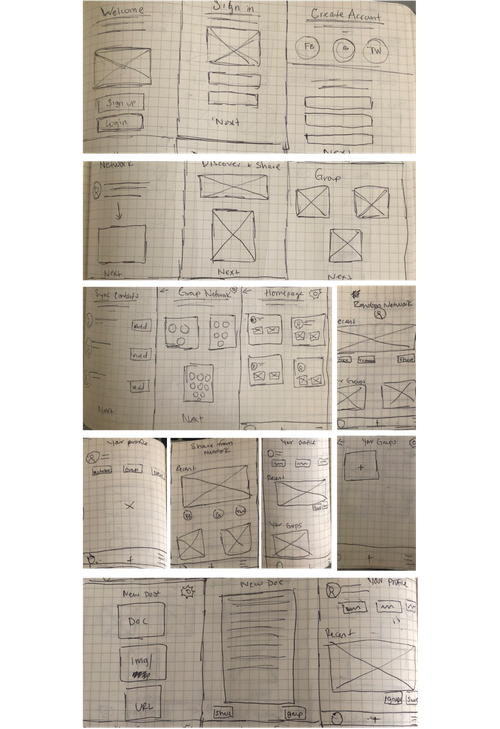 Welcome
Sign up
Login
Sign in
Next
Create Account
FB
TW
Next
Network
Next
Discover + Share
Next
Group
Next
Sync Contacts
add
add
add
Next
Group Network
Next
Homepage
Random Network
Recent
Your Groups
Your profile
Share from
Network
Recent
Your profile
Recent
Your Groups
Your Groups
+
New Post
Doc
Img/
URL
New Doc
Share
group
Your profile
Recent
group
Share